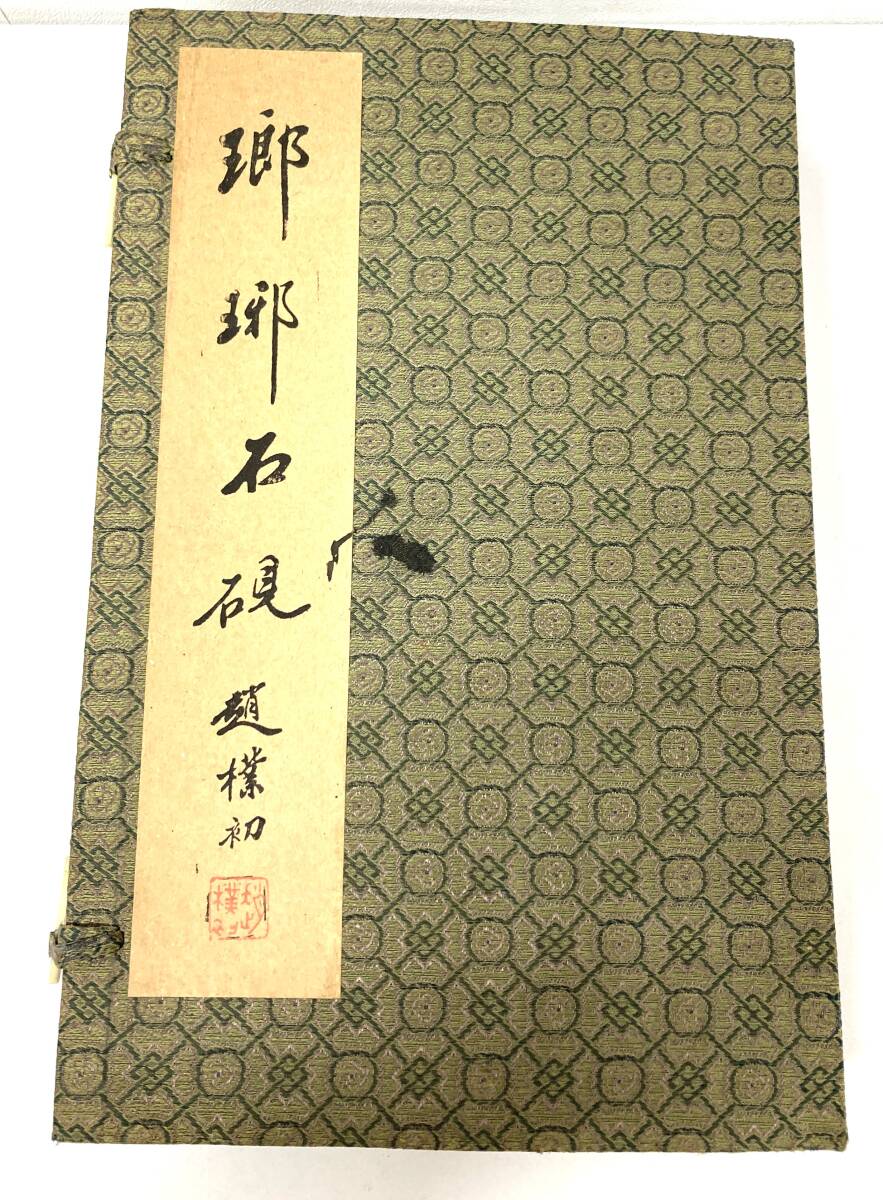 瑯琊石硯
趙樸初